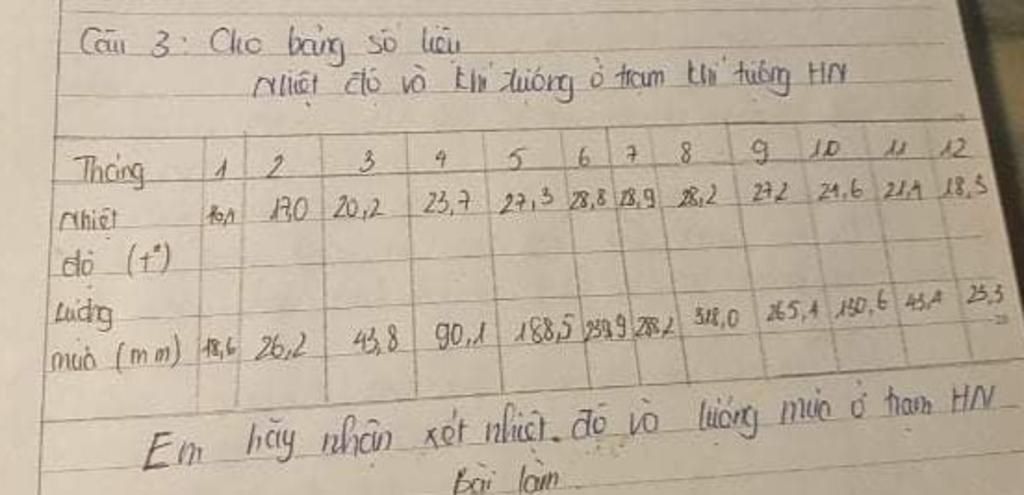 Câu 3: Cho bảng số liệu
Nhiệt độ và khí tượng ở trạm khí tượng HN
Tháng 1 2 3 4 5 6 7 8 9 10 11 12
Nhiệt độ (t°) 17,0 20,2 23,7 27,3 28,8 28,9 28,2 27,2 24,6 21,4 18,3
Lượng mưa (mm) 18,6 26,2 43,8 90,1 188,5 239,9 288,2 318,0 265,4 130,6 43,4 23,3
Em hãy nhận xét nhiệt độ và lượng mưa ở trạm HN
Bài làm